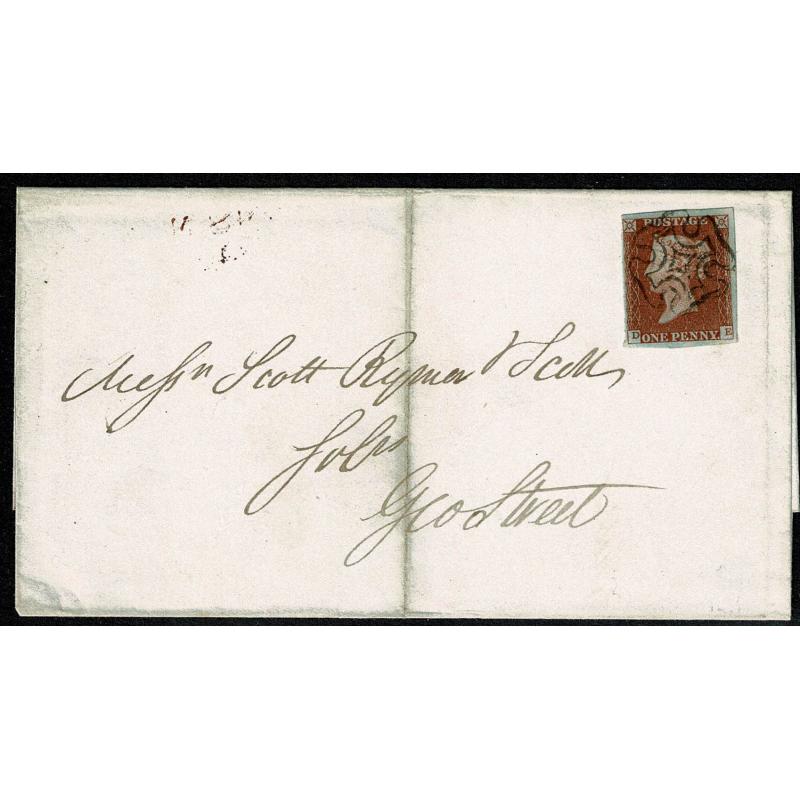 POSTAGE
D ONE PENNY E
Messrs Scott Rymer & Scott
Solrs
Geo Street